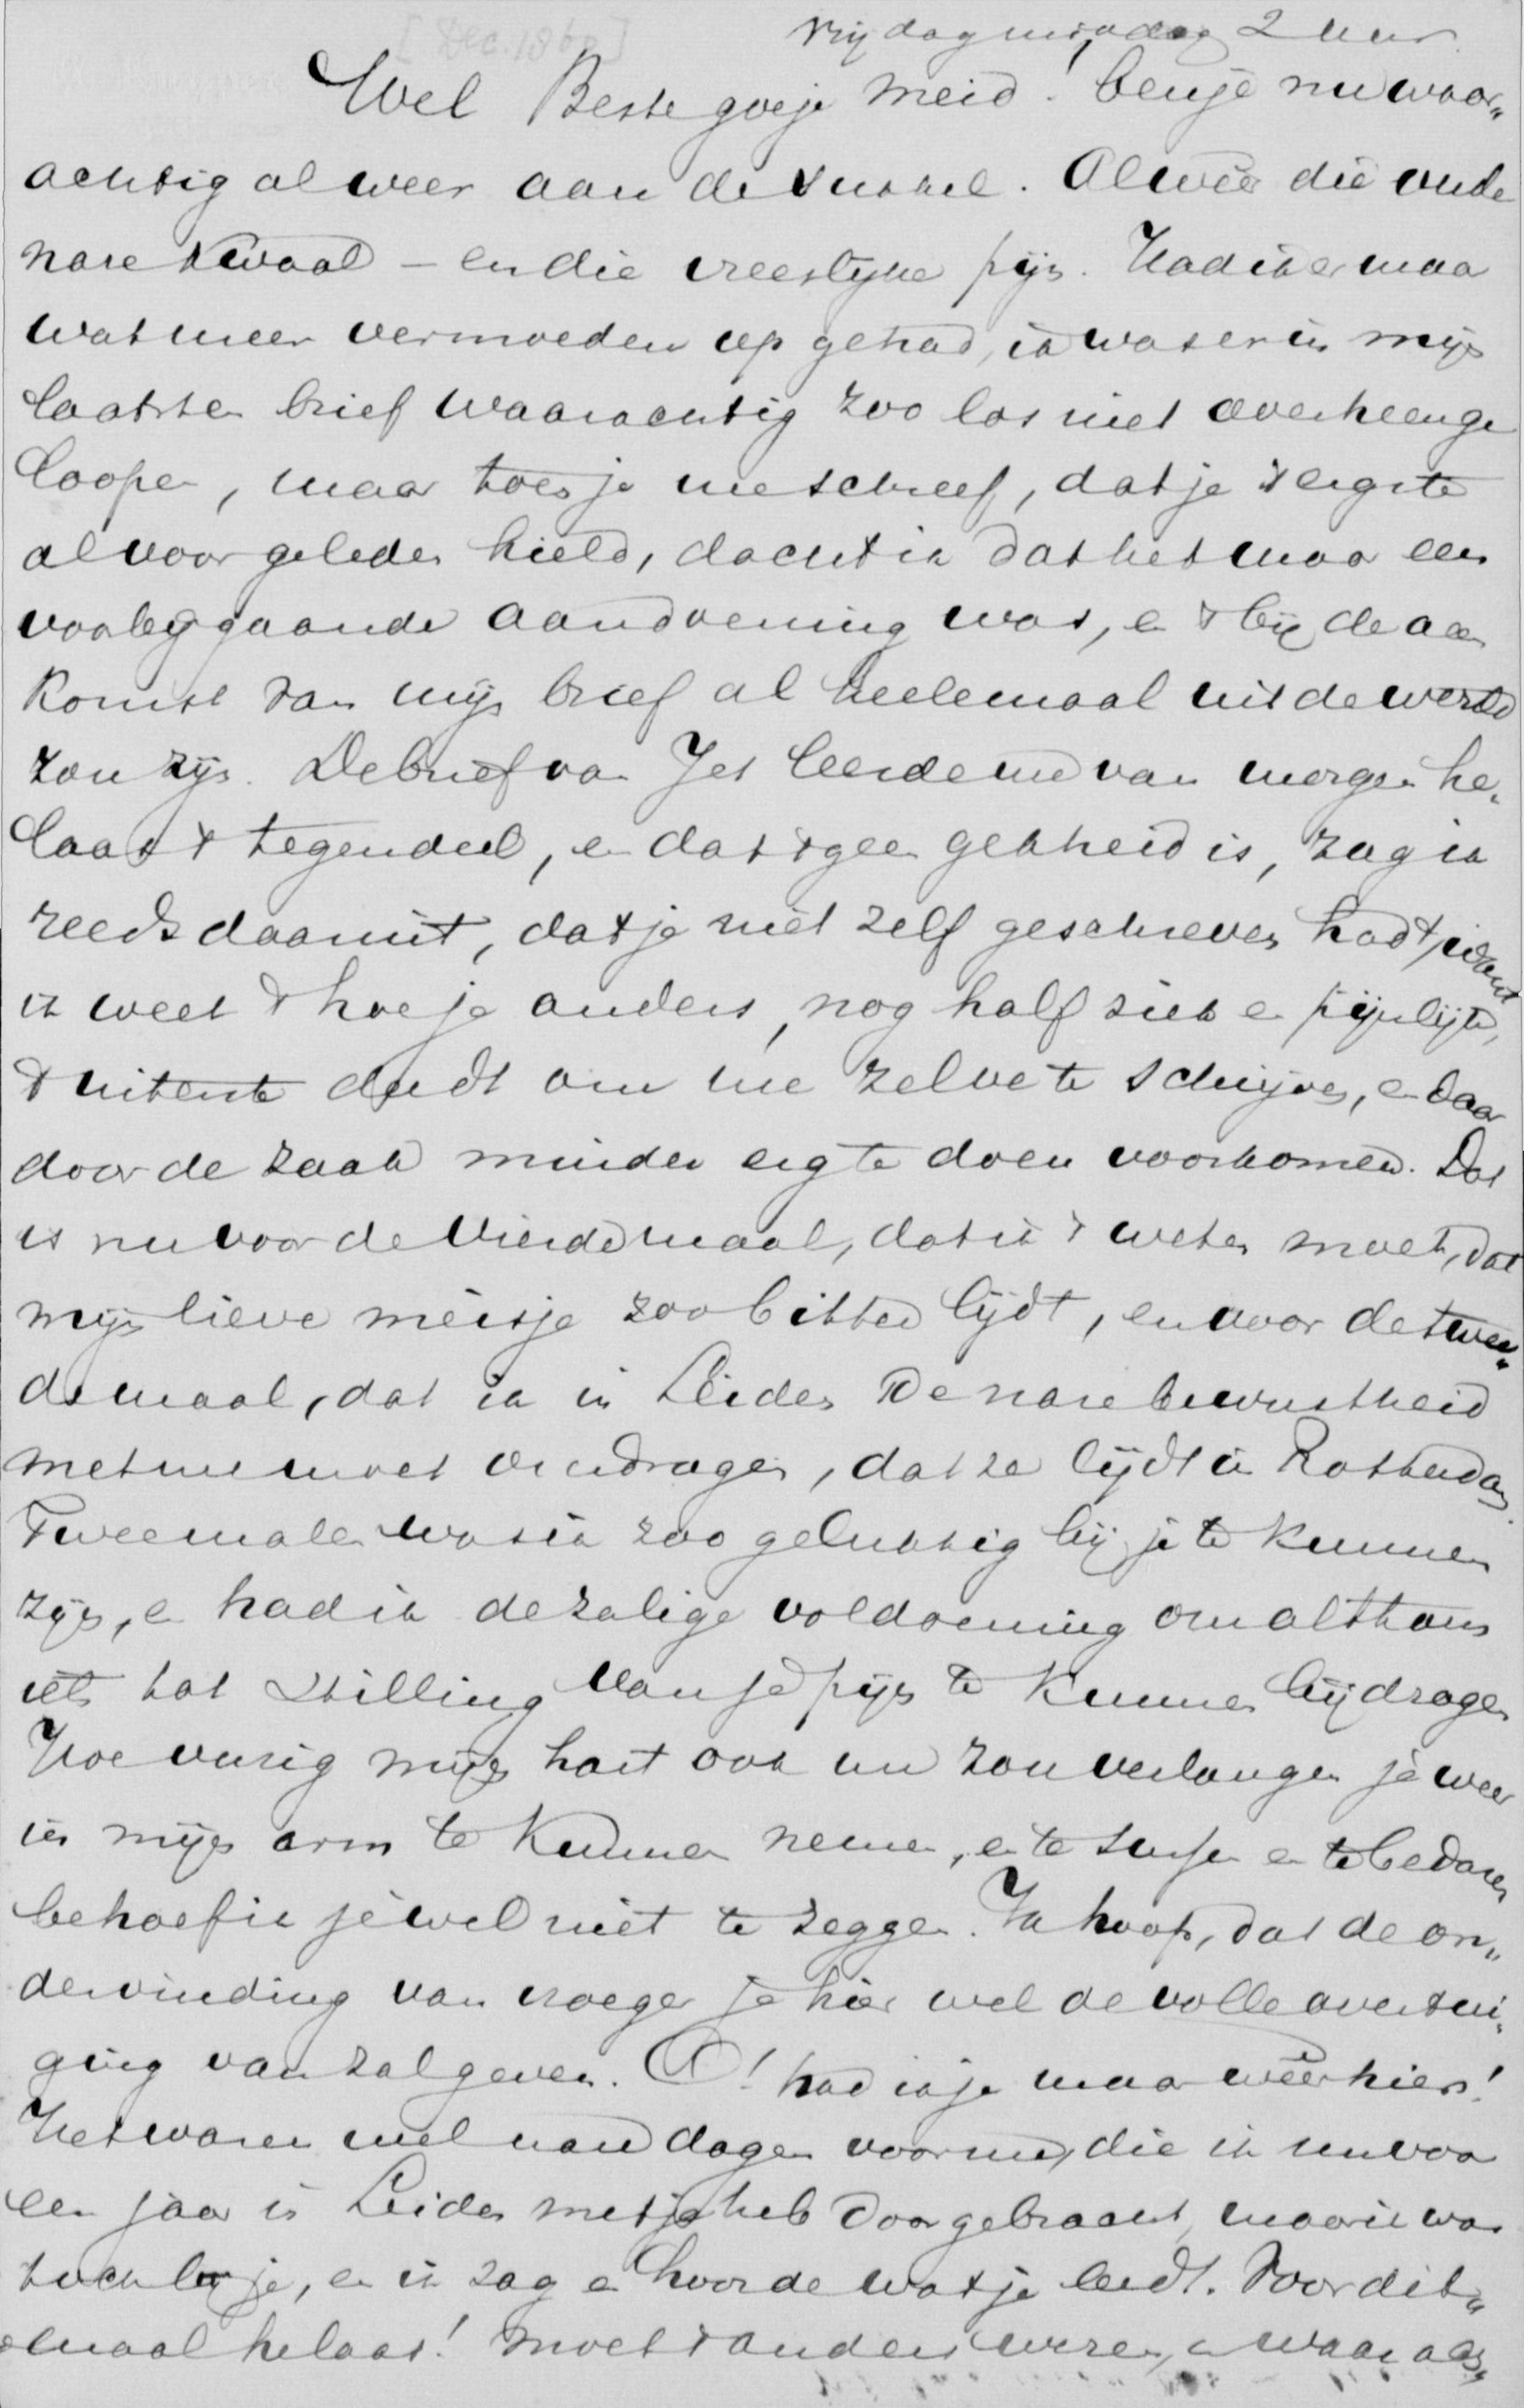 [Dec. 1860]
vrijdagmiddag 2 uur
Wel Beste goeje meid! benje nu waar„
achtig al weer aan de sukkel. Alweêr die oude
nare kwaal – en die vreeslijke pijn. Had ik er maar
wat meer vermoeden op gehad, ik was er in mijn
laatsten brief waarachtig zoo los niet overheenge
loopen, maar toen je me schreef, dat je 't ergste
al voor geleden hield, dacht ik dat het maar een
voorbijgaande aandoening was, en 't bij de aan
komst van mijn brief al heelemaal uit de wereld
zou zijn. De brief van Jet leerde me van morgen he„
laas 't tegendeel, en dat 't geen gekheid is, zag ik
reeds daaruit, dat je niet zelf geschreven hadt, want
ik weet 't hoe je anders, nog half ziek en pijnlijk,
't uiterste deedt om me zelve te schrijven, en daar
door de zaak minder erg te doen voorkomen. Dat
is nu voor de vierdemaal, dat ik 't weten moet, dat
mijn lieve meisje zoo bitter lijdt, en voor de twee„
demaal, dat ik in Leiden de nare bewustheid
met me moet omdragen, dat ze lijdt in Rotterdam.
Tweemalen was ik zoo gelukkig bij je te kunnen
zijn, en had ik de zalige voldoening om althans
iets tot stilling van je pijn te kunnen bijdragen
Hoe vurig mijn hart ook nu zou verlangen je weer
in mijn arm te kunnen nemen, en te sussen en te bedaren
behoef ik je wel niet te zeggen. Ik hoop, dat de on„
dervinding van vroeger je hier wel de volle overtui„
ging van zal geven. O! had ik je maar weêr hier!
Het waren wel nare dagen voor me, die ik nu voor
een jaar in Leiden met je heb doorgebracht, maar ik was
toch bij je, en ik zag en hoorde wat je leedt. Voor dit„
maal helaas! moet 't anders wezen, en waar aan„